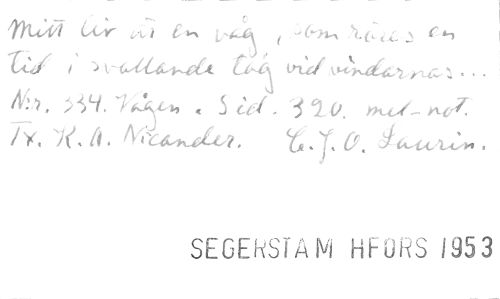 Mitt liv är en våg, som röres en
tid i svallande tåg vid vindarnas...
N:r. 334. Vågen. Sid. 320. mel-not.
Tx. K. A. Nicander. C. J. O. Laurin.
SEGERSTAM HFORS 1953